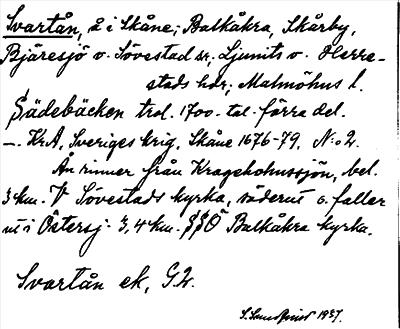 Svartån, å i Skåne; Balkåkra, Skårby,
Bjäresjö o. Sövestad sr, Ljunits o. Herre-
stads hdr, Malmöhus l.
Sädebäcken trol. 1700-tal. förra del.
—. KrA, Sveriges krig, Skåne 1676-79, N:o 2.
Ån rinner från Krageholmssjön, bel.
3 km. V Sövestads kyrka, söderut o. faller
ut i Östersj. 3,4 km. SSÖ Balkåkra kyrka.
Svartån ek, G2.
1937.